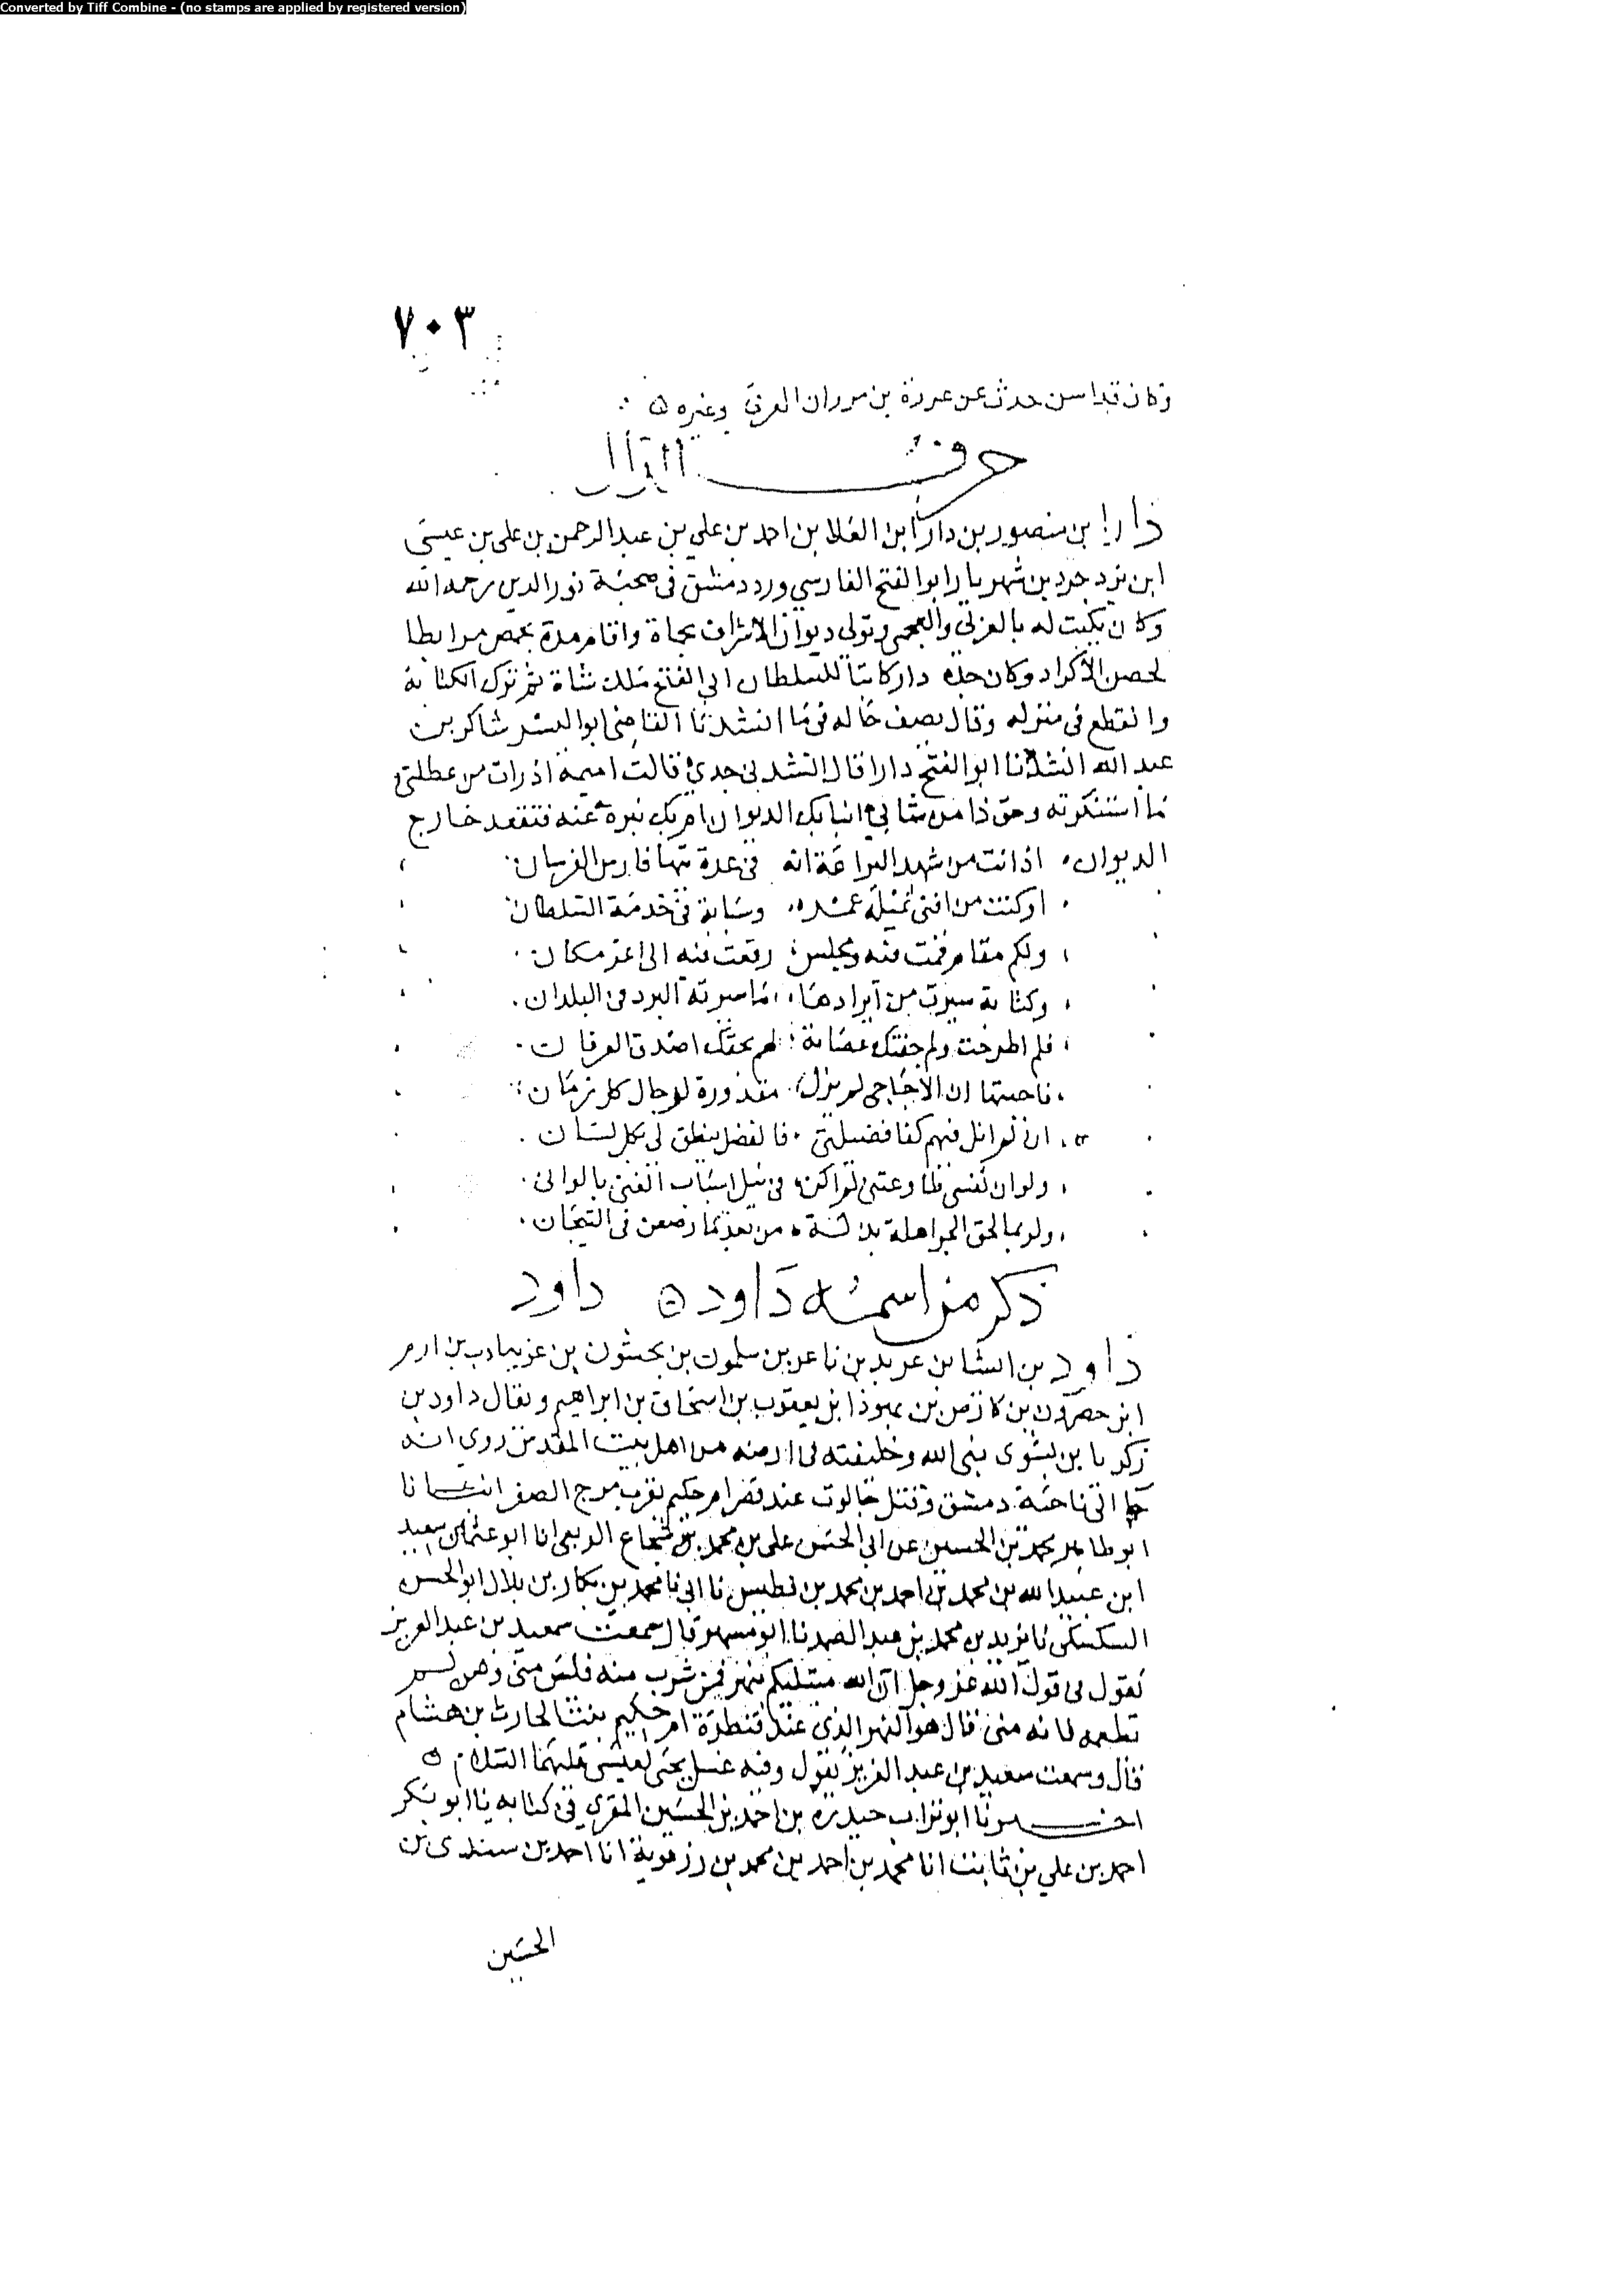 Converted by Tiff Combine - (no stamps are applied by registered version)
٧٠٣
وكان قد اسن حدث عن عروة بن مروان العرقي وغيره
حرف الدال
دارا بن منصور بن دارا بن العلا بن احمد بن علي بن عبد الرحمن بن علي بن عيسى
ابن يزدجرد بن شهريار ابو الفتح الفارسي ورد دمشق في صحبة نور الدين رحمه الله
وكان يكتب له بالعربي والعجمي وتولى ديوان الاشراف بحماة واقام مدة بحمص مرابطا
لحصن الاكراد وكان جده دارا كاتبا للسلطان ابي الفتح ملك شاة ثم ترك الكتابة
وانقطع في منزله وقال يصف حاله فيما انشدنا القاضي ابو اليسر شاكر بن
عبد الله انشدنا ابو الفتح دارا قال انشدني جدي قالت اميمة اذ رات من عطلتي
ما استنكرته وحق ذا من شاني انبا بك الديوان ام بك نبوة عنه فتقعد خارج
الديوان اذ انت من شهد اليراعة انه في عدة منها فارس الفرسان
او كنت من افنى عمره وشبابه في خدمة السلطان
ولكم مقام قمت فيه ومجلس رفعت فيه الى اعز مكان
وكتابة سيرت من ايرادها ما سيرته البرد في البلدان
فلم اطرحت ولم جفتك عصابة لهم بحقك اصدق العرفان
فاجبتها ان الاحاجي لم يزل مقدورة لرجال كل زمان
ان لم انل فيهم كفا فضيلتي فالفضل ينطق لي بكل لسان
ولو ان نفسي طاوعتني لم اكن في نيل اسباب الغنى بالواني
ولربما لحق الجواهر بذلة من بعد ما رصعن في التيجان
ذكر من اسمه داود داود
داود بن ايشا بن عوبد بن باعز بن سلمون بن نحشون بن عويناداب بن ارم
ابن حصرون بن فارص بن يهوذا بن يعقوب بن اسحاق بن ابراهيم ويقال داود بن
زكريا بن بشوى نبي الله وخليفته في ارضه من اهل بيت المقدس روي انه
جا الى ناحية دمشق وقتل جالوت عند قصر ام حكيم بقرب مرج الصفر انبانا
ابو طاهر محمد بن الحسين عن ابي الحسن علي بن محمد بن شجاع الربعي انا ابو عثمان سعيد
ابن عبيد الله بن محمد بن احمد بن محمد بن فطيس نا ابي نا محمد بن بكار بن بلال ابو الحسن
السكسكي نا يزيد بن محمد بن عبد الصمد نا ابو مسهر قال سمعت سعيد بن عبد العزيز
يقول في قول الله عز وجل ان الله مبتليكم بنهر فمن شرب منه فليس مني ومن لم
يطعمه فانه مني قال هو النهر الذي عند قنطرة ام حكيم بنت الحارث بن هشام
قال وسمعت سعيد بن عبد العزيز يقول وفيه غسل يحيى لعيسى عليهما السلام
اخبرنا ابو تراب حيدرة بن احمد بن الحسين المقري في كتابه نا ابو بكر
احمد بن علي بن ثابت انا محمد بن احمد بن محمد بن رزقويه انا احمد بن سندي بن
الحسين